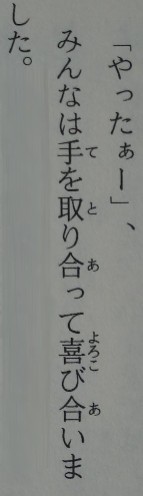 「やったぁー」、
みんなは手を取り合って喜び合いま
した。